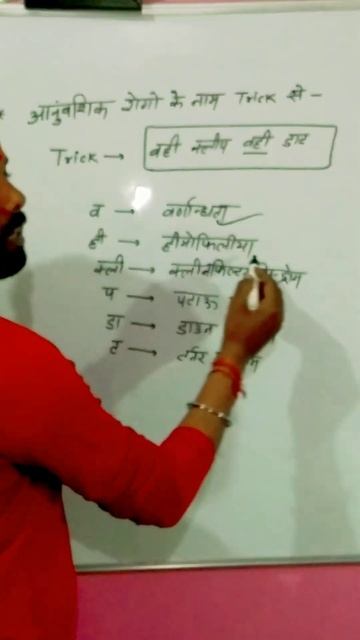 आनुवंशिक रोगो के नाम Trick से -
Trick → वही क्लीप वही डाट
व → वर्णान्धता
ही → हीमोफिलीया
क्ली → क्लीनफिल्टर
प → पटाऊ
डा → डाउन
ट → टर्नर